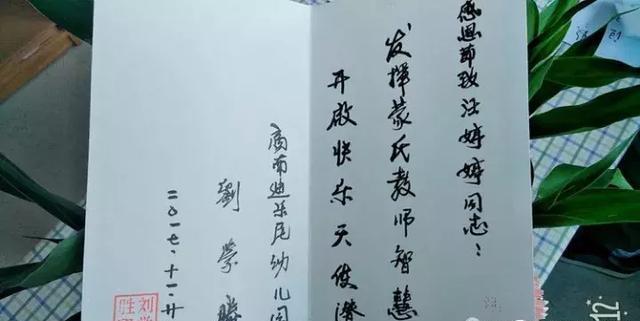 感恩节致汪婷婷同志：
发挥蒙氏教师智慧
开啟快乐天使潜
商南迪乐尼幼儿园
劉学勝
二〇一七·十一·廿